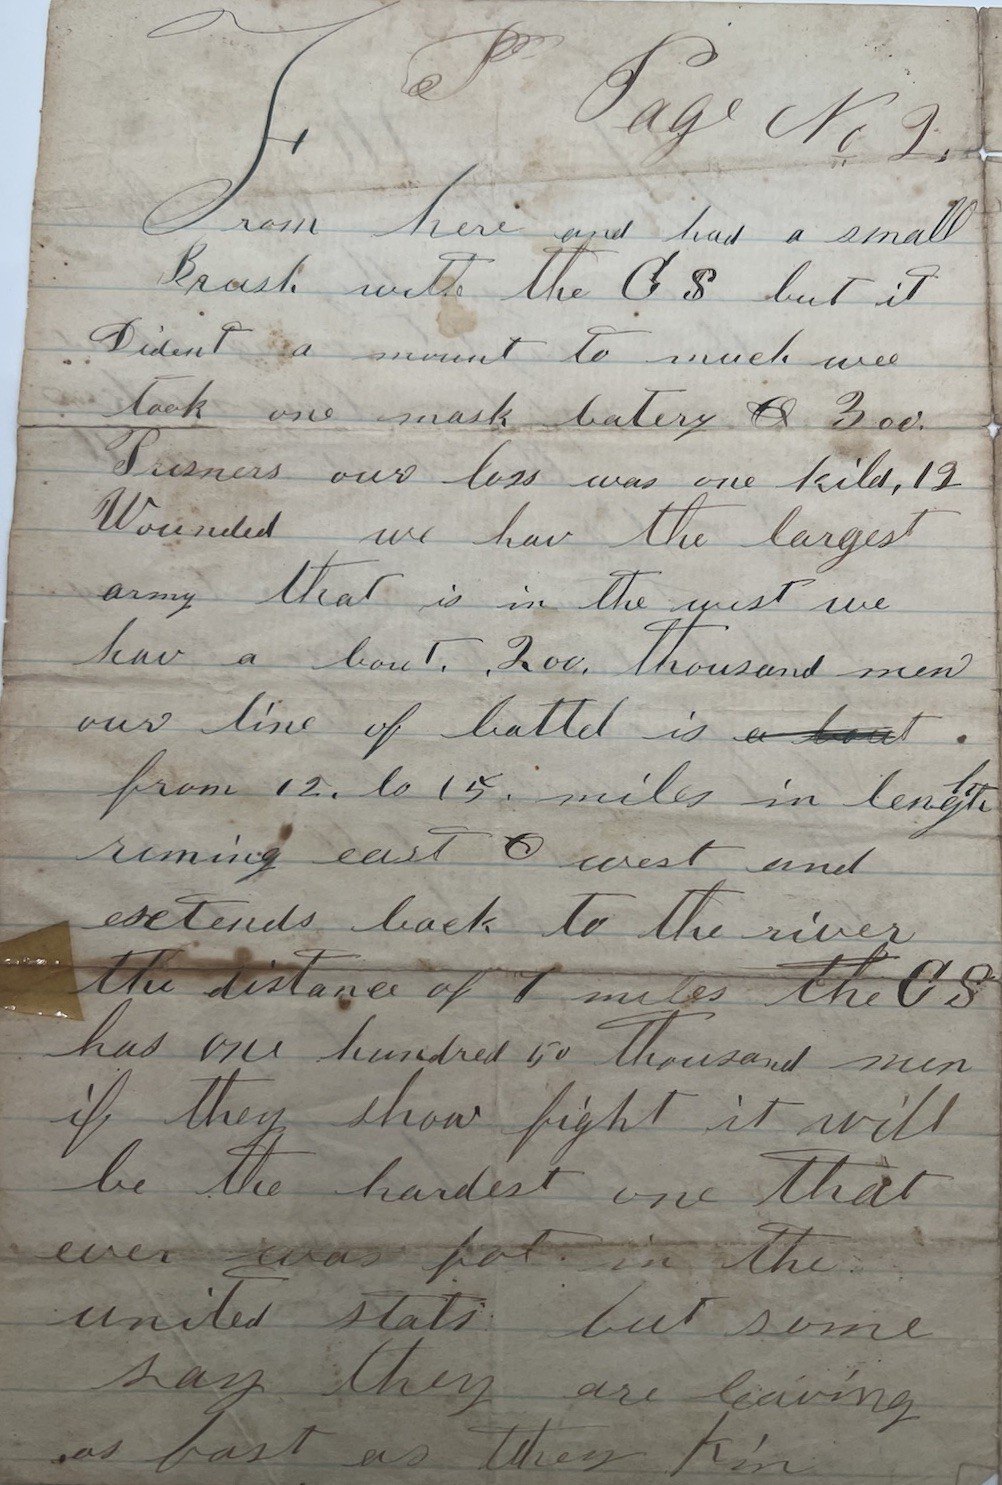 Page No 2.
From here and had a small
Brush with the CS but it
Dident a mount to much wee
took one mask batery & 300.
Prisners our loss was one kild, 12
Wounded we hav the largest
army that is in the west we
hav a bout. 200. thousand men
our line of battel is a bout
from 12. to 15. miles in length
runing east & west and
exetends back to the river
the distance of 7 miles the CS
has one hundred 50 thousand men
if they show fight it will
be the hardest one that
ever was fot in the
united stats but some
say they are leaving
as fast as they kin